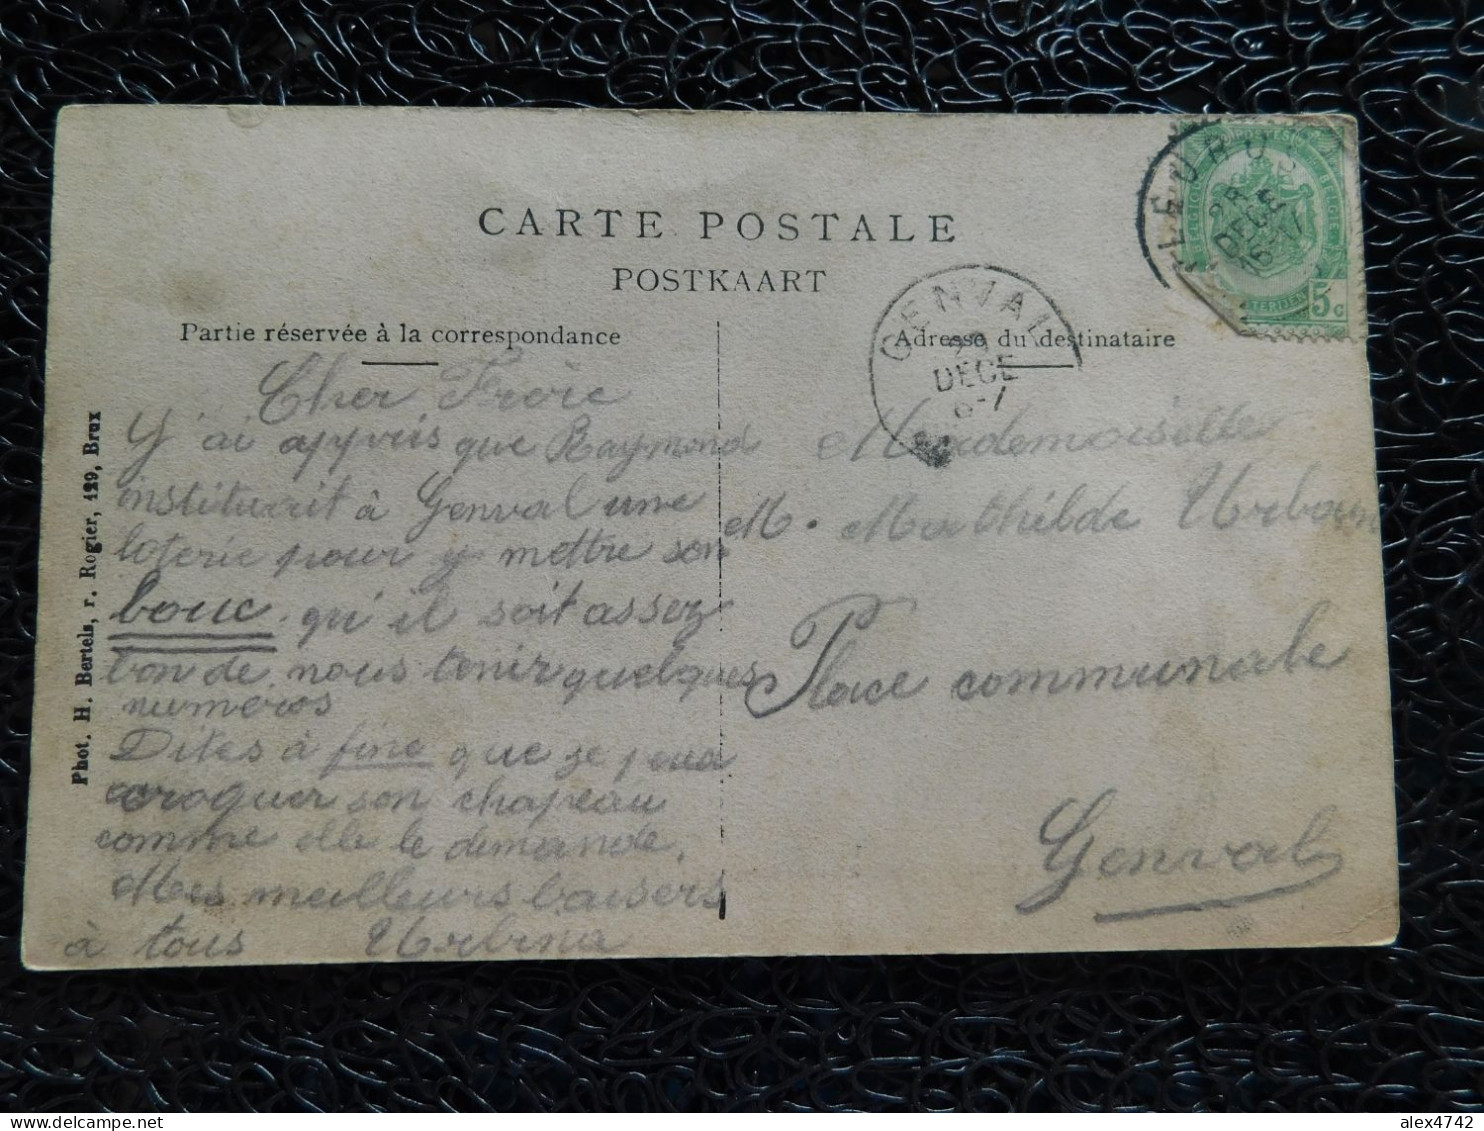 CARTE POSTALE
POSTKAART
Partie réservée à la correspondance
Adresse du destinataire
Phot. H. Bertels, r. Rogier, 129, Brux
FLEURUS
28
DECE
16-17
5c
GENVAL
DECE
6-7
Cher
Y'ai appris que Raymond
instituerit à Genval une
loterie pour y mettre son
bouc. qu'il soit assez
bon de nous tenir quelques
numéros
Dites à fine que je peux
croquer son chapeau
comme elle le demande,
Mes meilleurs baisers
à tous Urbina
Mademoiselle
M. Mathilde Urbain
Place communale
Genval
alex4742